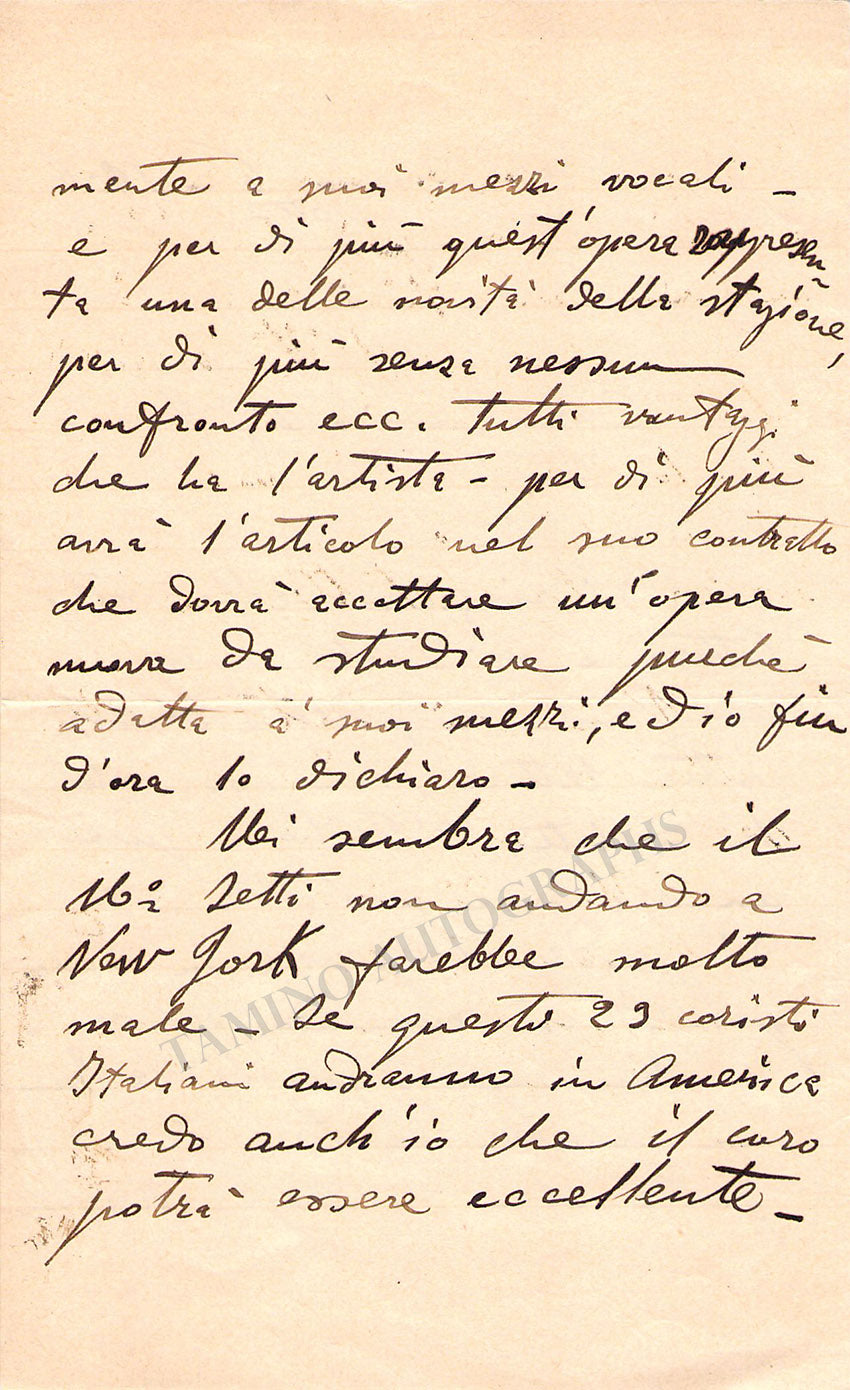 mente a suoi mezzi vocali -
e per di più quest'opera rappresen-
ta una delle novità della stagione,
per di più senza nessun
confronto ecc. tutti vantaggi
che ha l'artista - per di più
avrà l'articolo nel suo contratto
che dovrà accettare un'opera
nuova da studiare purchè
adatta a' suoi mezzi, ed io fin
d'ora lo dichiaro -
Mi sembra che il
Mo Setti non andando a
New York farebbe molto
male - Se questi 23 coristi
Italiani andranno in America
credo anch'io che il coro
potrà essere eccellente -
TAMINO AUTOGRAPHS